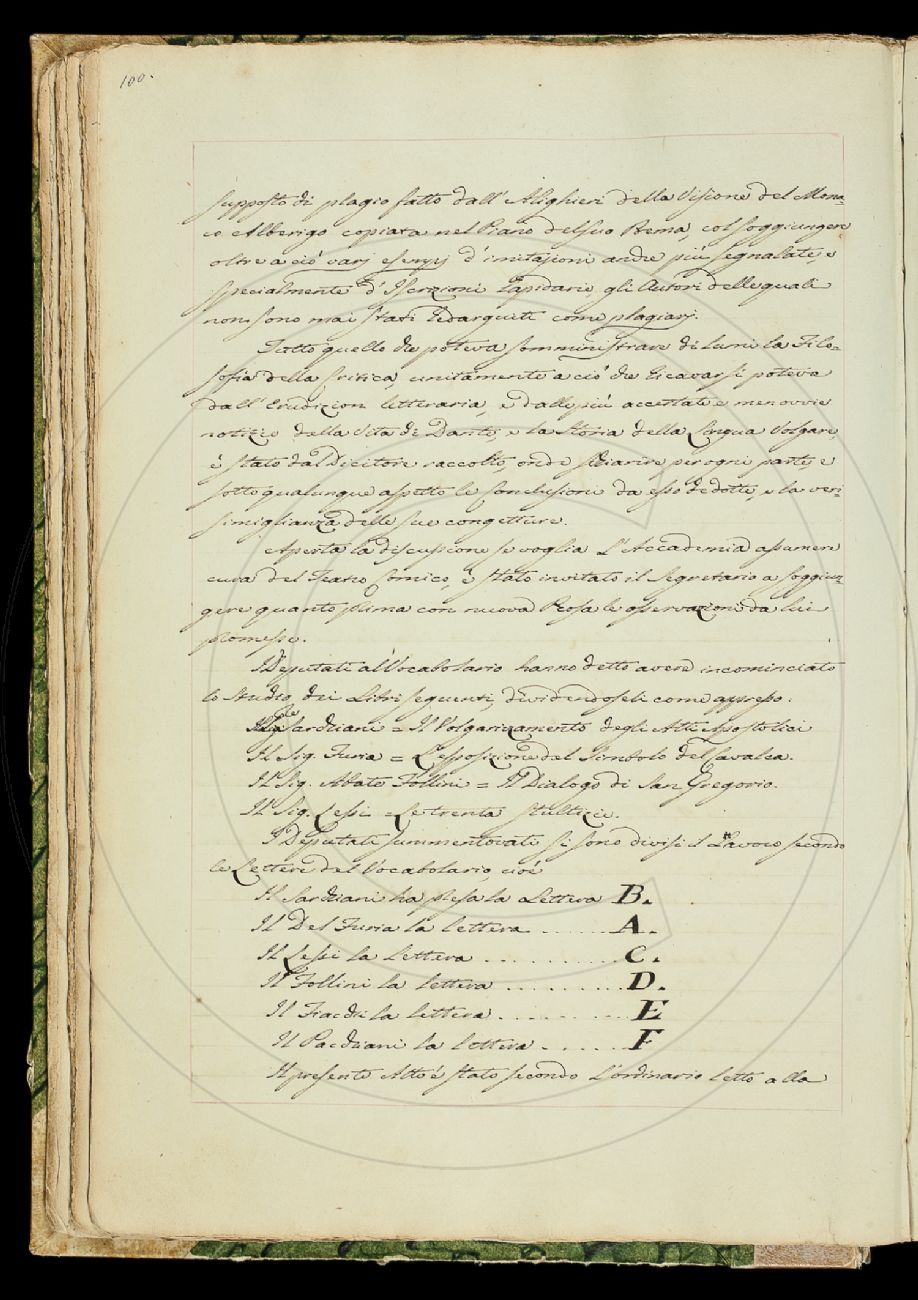 100.
supposto di plagio fatto dall' Alighieri della Visione del Mona
co Alberigo copiata nel Piano del suo Poema, col soggiungere
oltre a ciò varj esempj d'imitazioni anche più segnalate, e
specialmente d'Iscrizioni Lapidarie, gli Autori delle quali
non sono mai stati redarguiti come plagiarj.
Tutto quello che poteva somministrare di lumi la Filo=
sofia della Critica unitamente a ciò che ricavarsi poteva
dall' Erudizion letteraria, e dalle più accertate e men ovvie
notizie della Vita di Dante, e la Storia della Lingua Volgare,
è stato dal Dicitore raccolto, onde schiarire per ogni parte, e
sotto qualunque aspetto le conclusioni da esso dedotte, e la veri=
simiglianza delle sue congetture.
Aperta la discussione se voglia l'Accademia assumere
cura del Teatro Comico, è stato invitato il Segretario a soggiun=
gere quanto prima con nuova Prosa le osservazioni da lui
promesse.
I Deputati al Vocabolario hanno detto avere incominciato
lo Studio dei Libri seguenti, dividendoseli come appresso.
Sarchiani = Il Volgarizamento degli Atti Apostolici
Il Sig. Furia = L'esposizione del Simbolo del Cavalca.
Il Sig. Abate Follini = Il Dialogo di San Gregorio.
Il Sig. Lessi = Le trenta Stultizie.
I Deputati summentovati si sono divisi il Lavoro secondo
le Lettere del Vocabolario, cioè
Il Sarchiani ha presa la Lettera B.
Il Del Furia la lettera ...... A.
Il Lessi la Lettera .......... C.
Il Follini la lettera ......... D.
Il Fiacchi la lettera ......... E
Il Pacchiani la lettera ...... F
Il presente Atto è stato secondo l'ordinario letto alla